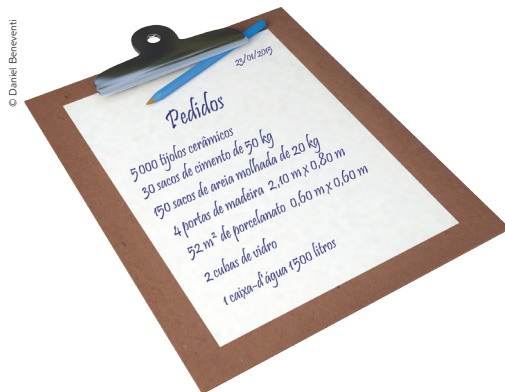 © Daniel Beneventi
23/01/2015
Pedidos
5 000 tijolos cerâmicos
30 sacos de cimento de 50 kg
150 sacos de areia molhada de 20 kg
4 portas de madeira 2,10 m x 0,80 m
52 m² de porcelanato 0,60 m x 0,60 m
2 cubas de vidro
1 caixa-d'água 1 500 litros